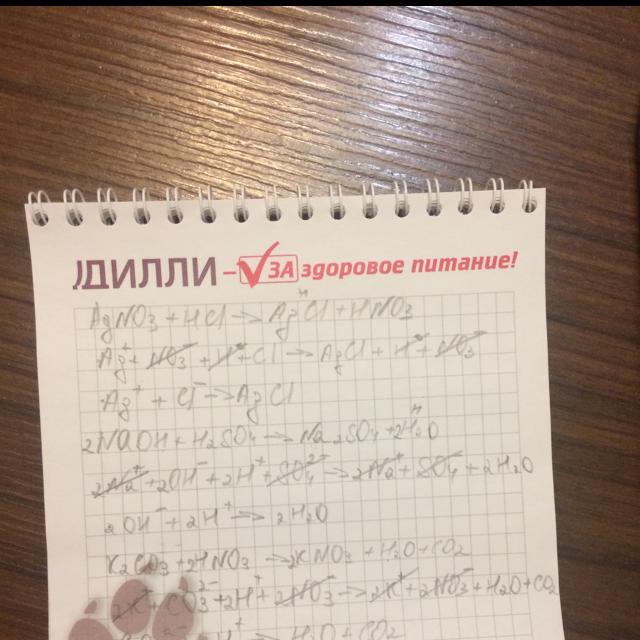 ДИЛЛИ – ЗА здоровое питание!
AgNO3 + HCl → AgCl + HNO3
Ag+ + NO3- + H+ + Cl- → AgCl + H+ + NO3-
Ag+ + Cl- → AgCl
2NaOH + H2SO4 → Na2SO4 + 2H2O
2Na+ + 2OH- + 2H+ + SO4 2- → 2Na+ + SO4 + 2H2O
2OH- + 2H+ → 2H2O
K2CO3 + 2HNO3 → 2KNO3 + H2O + CO2
2K+ + CO3 2- + 2H+ + 2NO3- → 2K+ + 2NO3- + H2O + CO2
H2O + CO2